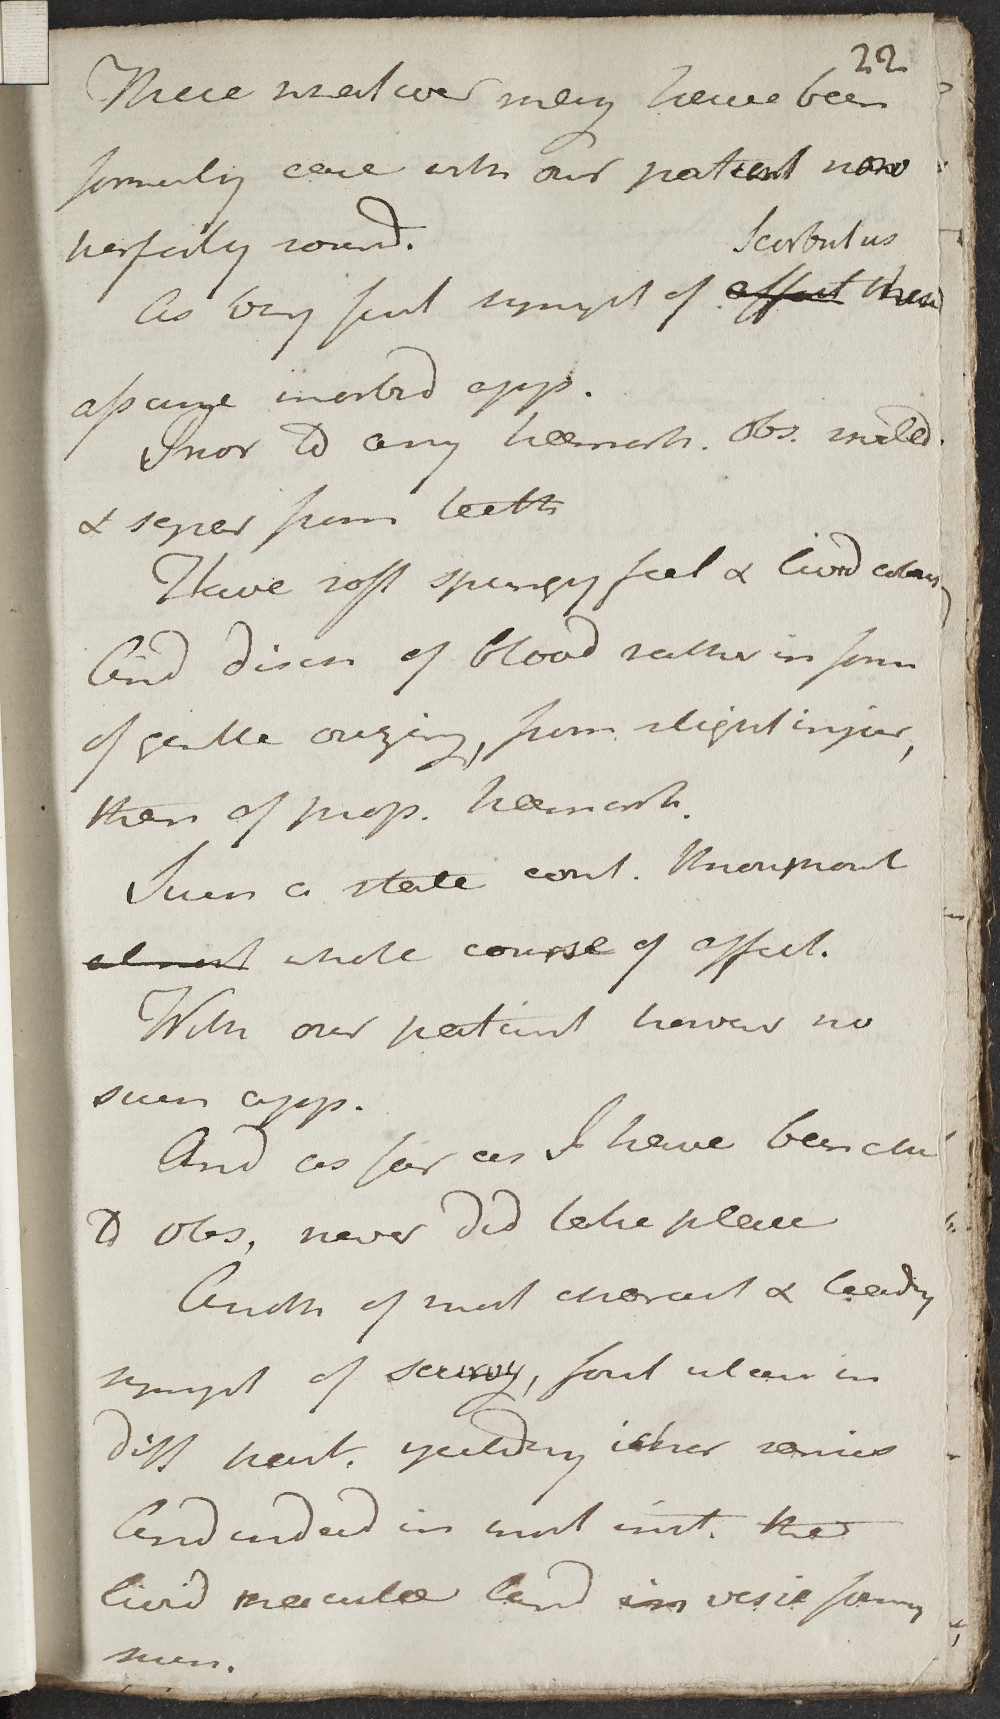 22
These whatever may have been
formerly case with our patient now
perfectly sound.
Scorbutus
As very first sympt of affect these
assume morbid app.
Prior to any hemorrh. Obs. swelled.
& seper from teeth
Have soft spungy feel & livid colour,
And disch of blood rather in form
of gentle ouzing, from slight injur,
then of prop. hemorrh.
Such a state cont. thro'out
almost whole course of affect.
With our patient however no
such app.
And as far as I have been able
to obs, never did take place
Anoth of most charact & leading
sympt of scurvy, foul ulcers in
diff part. yielding ichor sanies
And indeed in most inst. the
livid maculae tend in vesic forming
such.